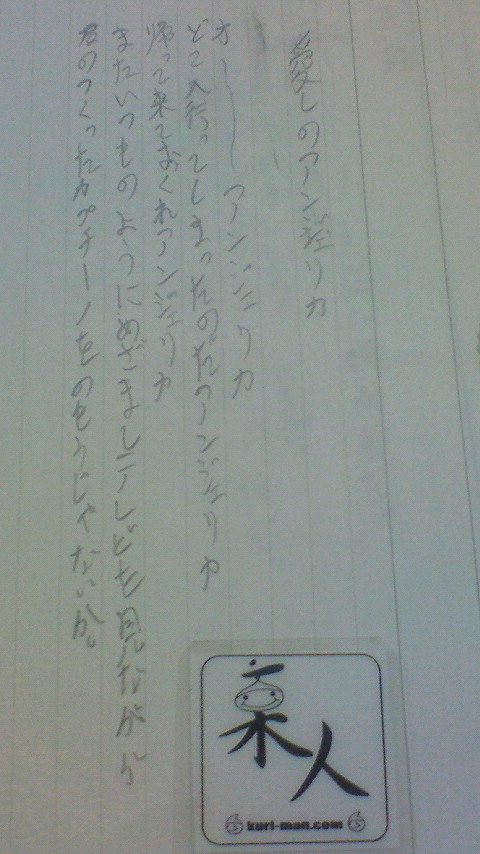 愛しのアンジェリカ
オーーーアンジェリカ
どこへ行ってしまったのだアンジェリカ
帰って来ておくれアンジェリカ
またいつものようにめざましテレビを見ながら
君のつくったカプチーノをのもうじゃないか。
栗人
kuri-man.com